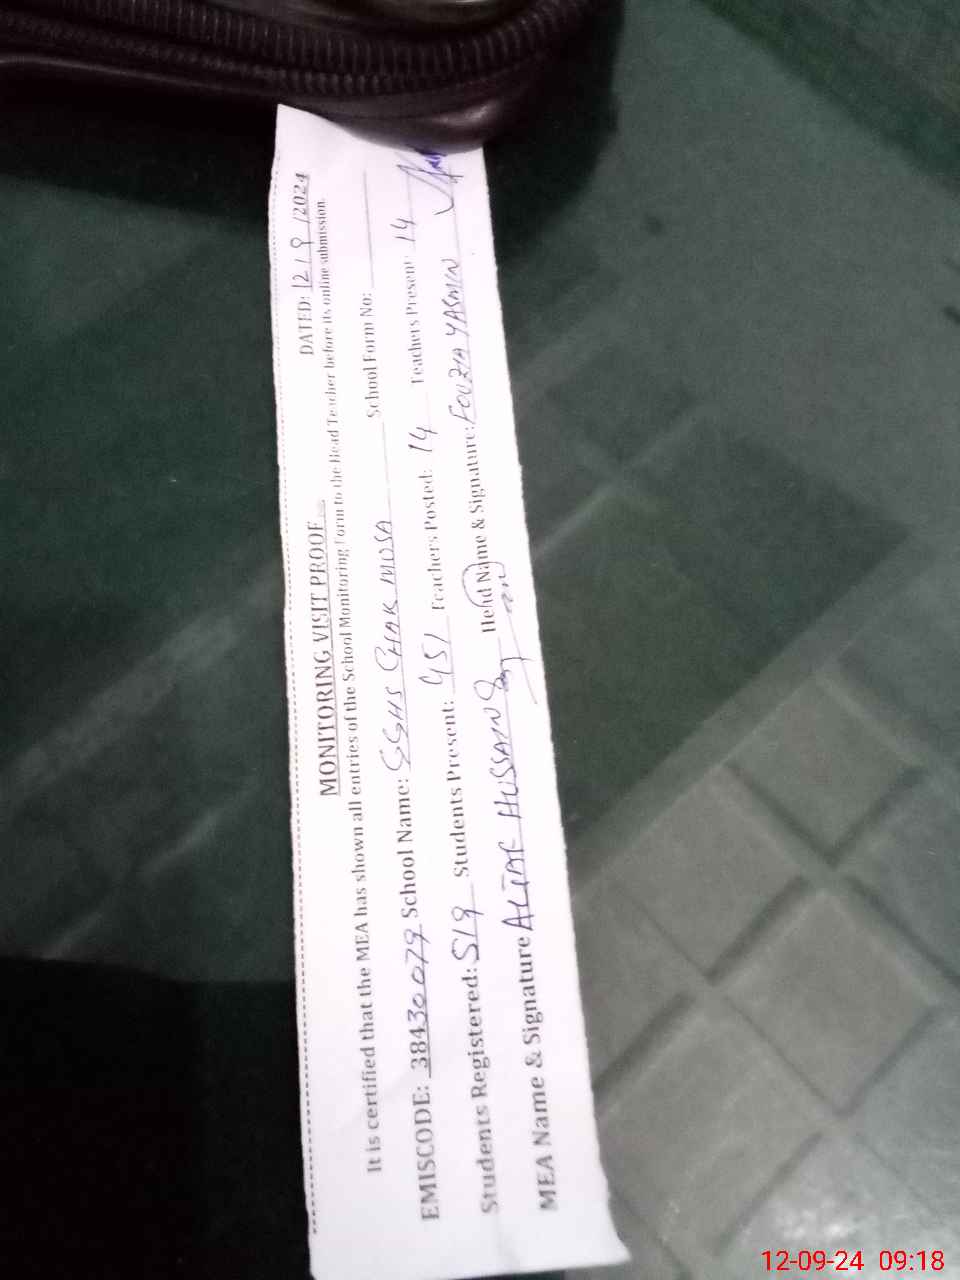 MONITORING VISIT PROOF
DATED: 12/9/2024
It is certified that the MEA has shown all entries of the School Monitoring Form to the Head Teacher before its online submission.
EMISCODE: 38430079 School Name: GGHS CHAK MUSA School Form No:
Students Registered: 519 Students Present: 451 Teachers Posted: 14 Teachers Present: 14
MEA Name & Signature HUSSAIN Head Name & Signature: FOUZIA YASMIN
12-09-24 09:18